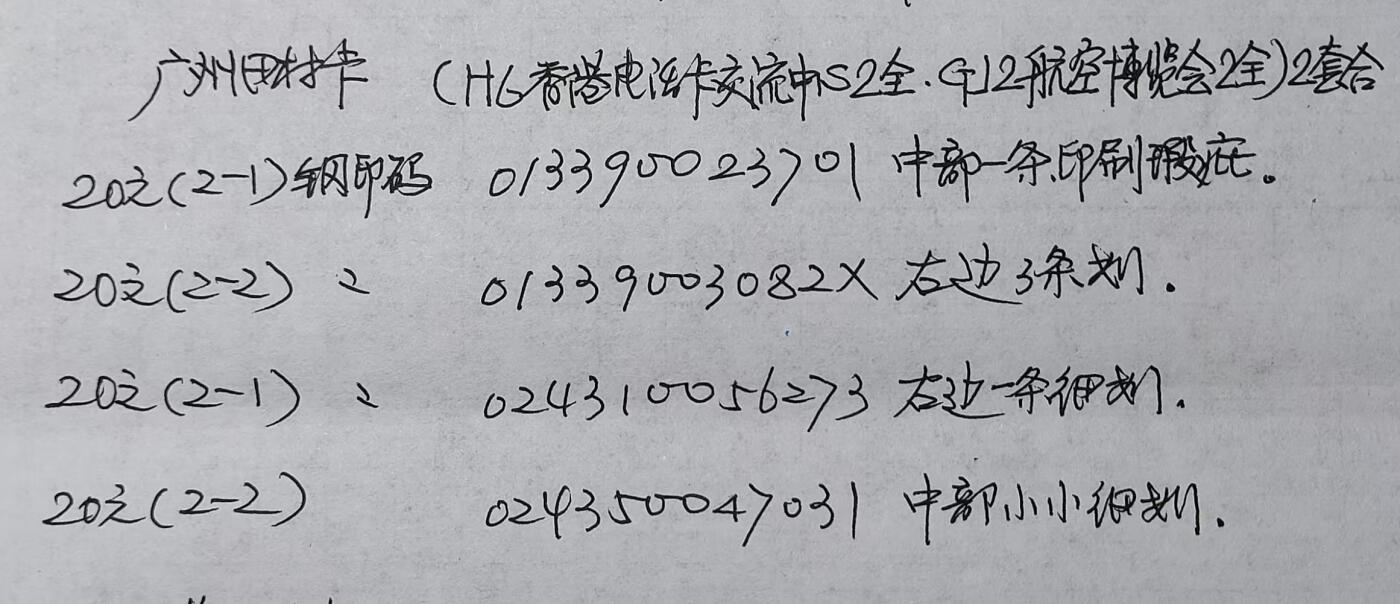 广州田村卡 (H6香港电话卡交流中心2全.G12航空博览会2全)2套合
20元(2-1)钢印码 013390023701 中部一条印刷瑕疵。
20元(2-2) 〃 01339003082X 右边3条划.
20元(2-1) 〃 024310056273 右边一条细划.
20元(2-2) 024350047031 中部小小细划.